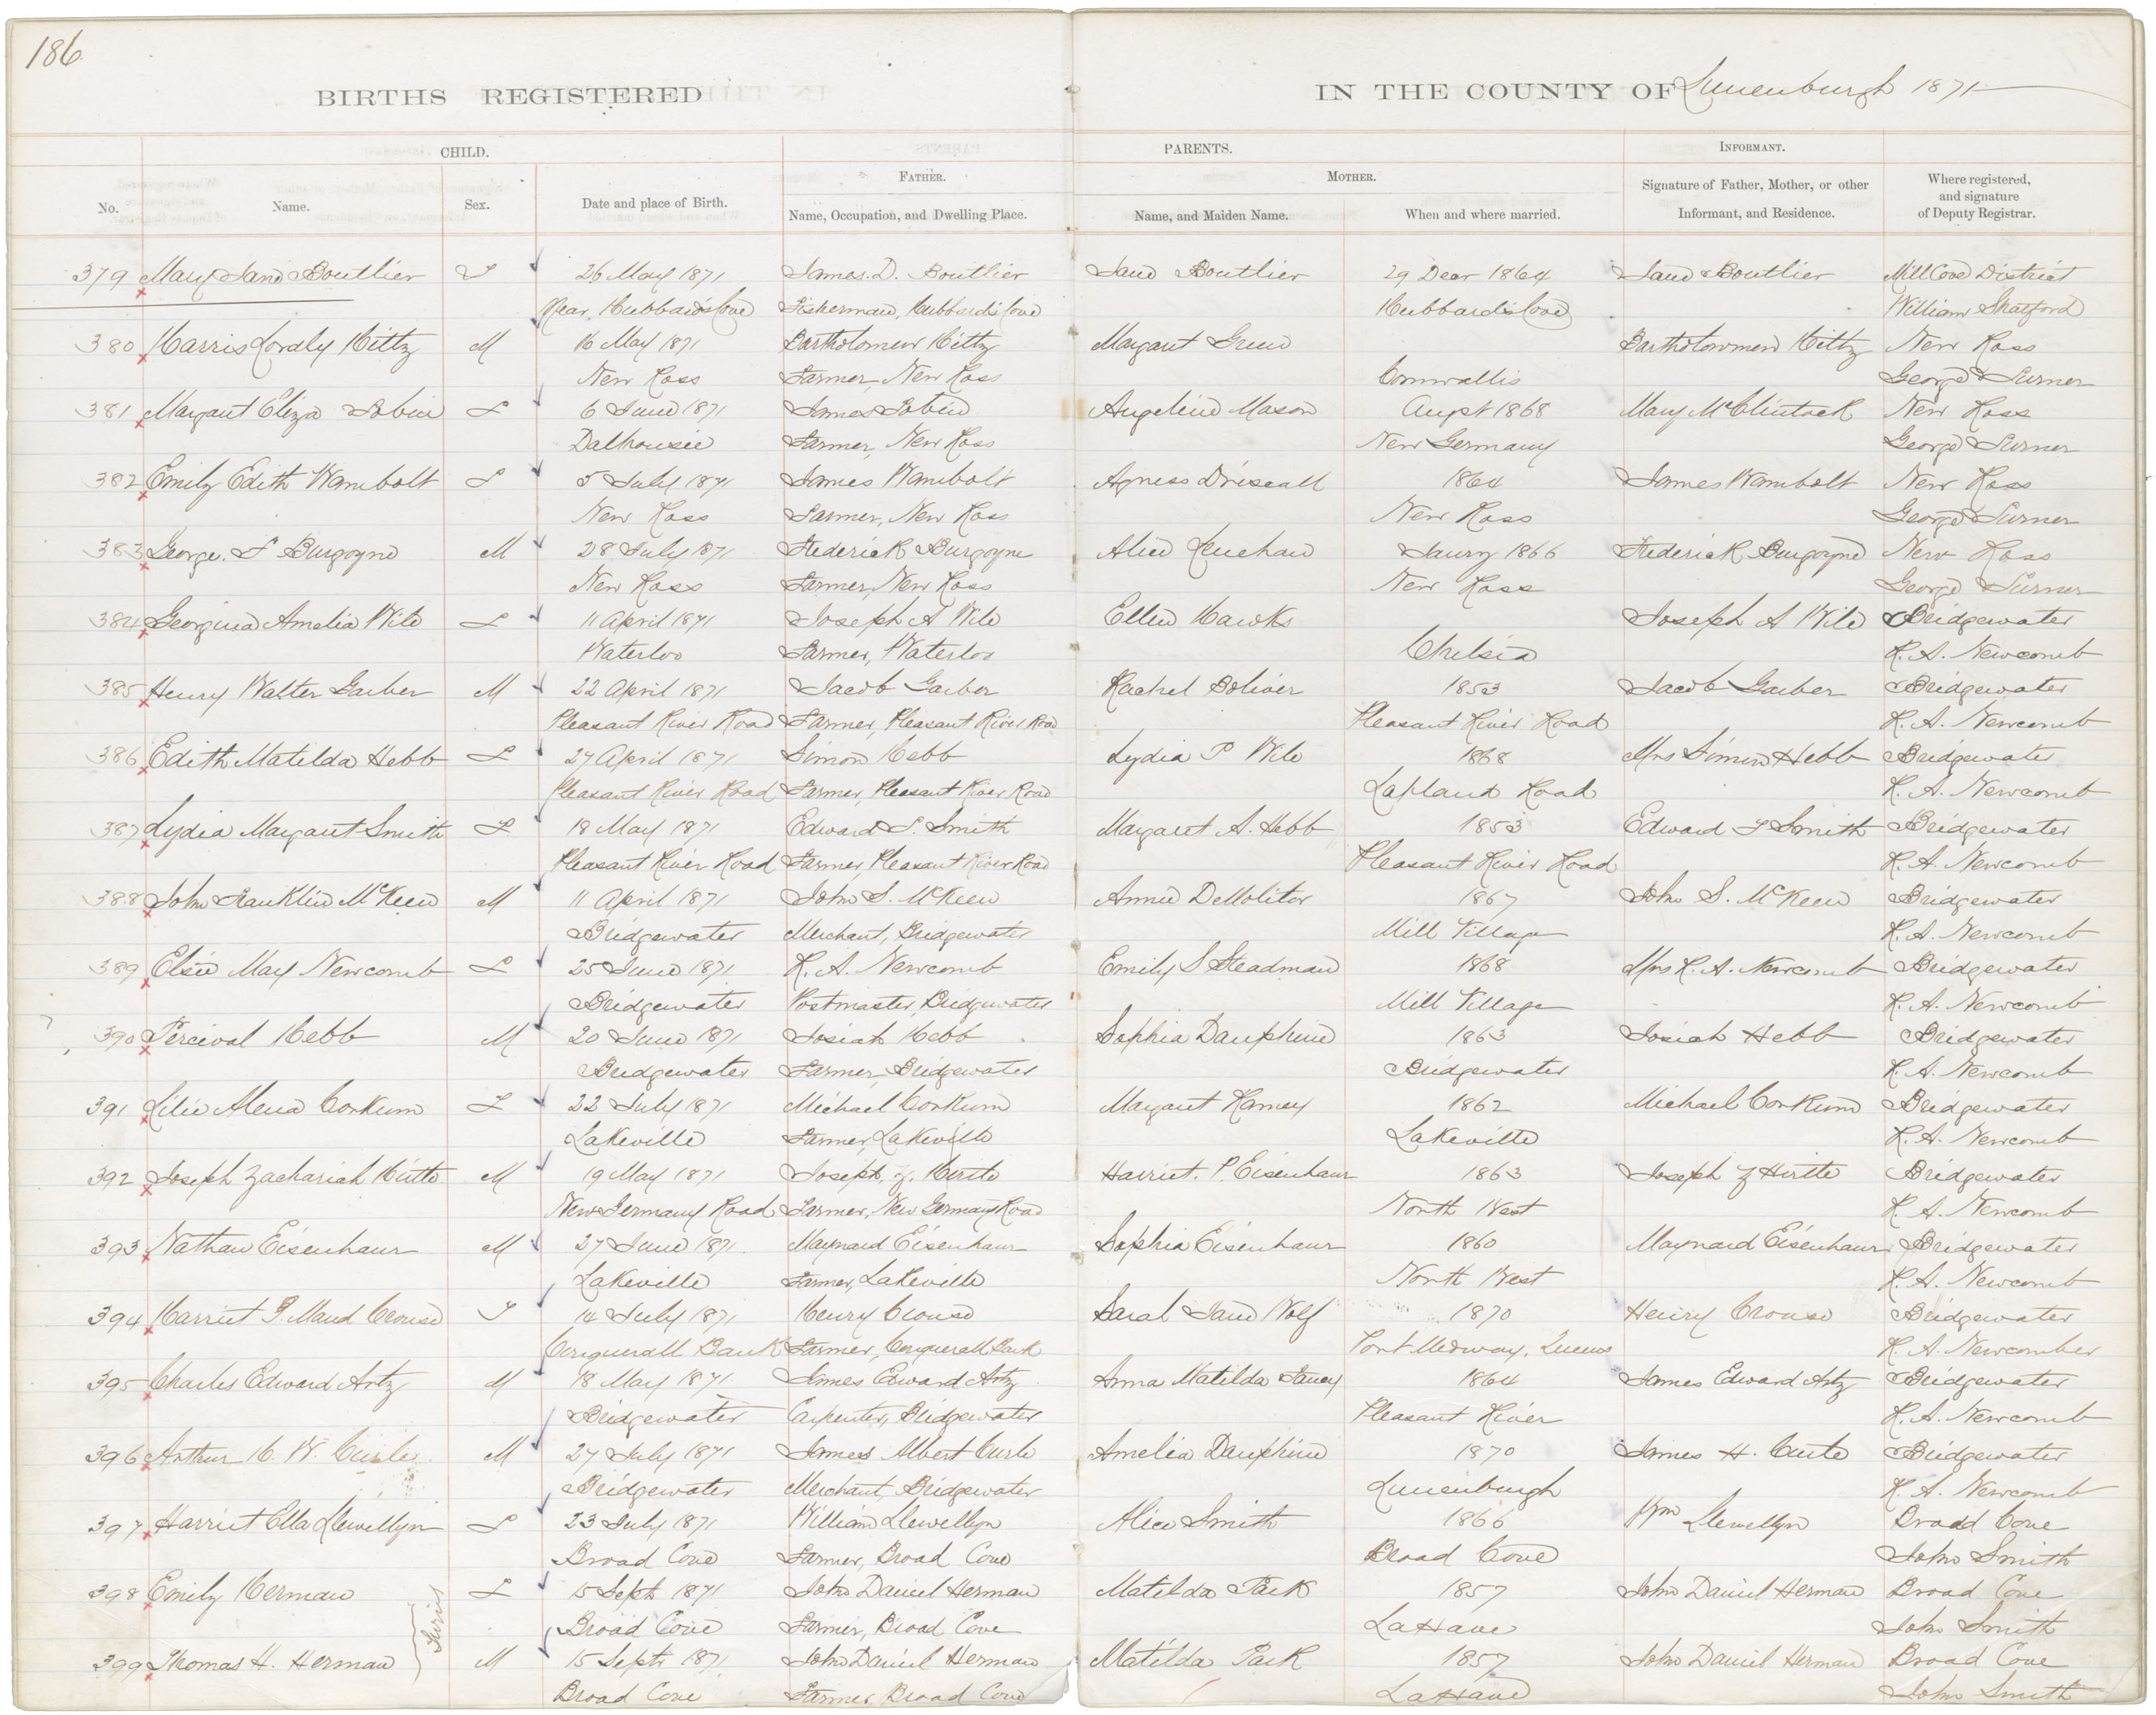 186
BIRTHS REGISTERED IN THE COUNTY OF Lunenburgh 1871
CHILD. PARENTS. INFORMANT.
FATHER. MOTHER.
No. Name. Sex. Date and place of Birth. Name, Occupation, and Dwelling Place. Name, and Maiden Name. When and where married. Signature of Father, Mother, or other Informant, and Residence. Where registered, and signature of Deputy Registrar.
379 Mary Jane Boutlier F 26 May 1871 James D. Boutlier Jane Boutlier 29 Decr 1864 Jane Boutlier Mill Cove District
Near, Hubbard's Cove Fisherman, Hubbard's Cove Hubbard's Cove William Shatford
380 Harris Lordly Hiltz M 16 May 1871 Bartholomew Hiltz Margaret Green Bartholowmew Hiltz New Ross
New Ross Farmer, New Ross Cornwallis George Turner
381 Margaret Eliza Tobin F 6 June 1871 James Tobin Angeline Mason Augst 1868 Mary McClintock New Ross
Dalhousie Farmer, New Ross New Germany George Turner
382 Emily Edith Wambolt F 5 July 1871 James Wambolt Agness Driscall 1864 James Wambolt New Ross
New Ross Farmer, New Ross New Ross George Turner
383 George. F Burgoyne M 28 July 1871 Frederick Burgoyne Alice Leuchan Janry 1866 Frederick Burgoyne New Ross
New Ross Farmer, New Ross New Ross George Turner
384 Georgina Amelia Wile F 11 April 1871 Joseph A Wile Ellen Hawks Joseph A Wile Bridgewater
Waterloo Farmer, Waterloo Chelsia R. A. Newcomb
385 Henry Walter Garber M 22 April 1871 Jacob Garber Rachel Boliver 1853 Jacob Garber Bridgewater
Pleasant River Road Farmer, Pleasant River Road Pleasant River Road R. A. Newcomb
386 Edith Matilda Hebb F 27 April 1871 Simon Hebb Lydia P Wile 1868 Mrs Simon Hebb Bridgewater
Pleasant River Road Farmer, Pleasant River Road Lapland Road R. A. Newcomb
387 Lydia Margaret Smith F 18 May 1871 Edward F. Smith Margaret A. Hebb 1853 Edward F Smith Bridgewater
Pleasant River Road Farmer, Pleasant River Road Pleasant River Road R. A. Newcomb
388 John Franklin McKeen M 11 April 1871 John S. McKeen Annie DeMolitor 1867 John S. McKeen Bridgewater
Bridgewater Merchant, Bridgewater Mill Village R. A. Newcomb
389 Elsie May Newcomb F 25 June 1871 R. A. Newcomb Emily S Steadman 1868 Mrs R. A. Newcomb Bridgewater
Bridgewater Postmaster, Bridgewater Mill Village R. A. Newcomb
390 Percival Hebb M 20 June 1871 Josiah Hebb Sophia Dauphine 1863 Josiah Hebb Bridgewater
Bridgewater Farmer, Bridgewater Bridgewater R. A. Newcomb
391 Lilie Alena Corkum F 22 July 1871 Michael Corkum Margaret Ramey 1862 Michael Corkum Bridgewater
Lakeville Farmer, Lakeville Lakeville R. A. Newcomb
392 Joseph Zachariah Hirtle M 19 May 1871 Joseph, Z. Hirtle Harriet. P. Eisenhaur 1863 Joseph Z Hirtle Bridgewater
New Germany Road Farmer, New Germany Road North West R. A. Newcomb
393 Nathan Eisenhaur M 27 June 1871 Maynard Eisenhaur Sophia Eisenhaur 1860 Maynard Eisenhaur Bridgewater
Lakeville Farmer, Lakeville North West R. A. Newcomb
394 Harriet G. Maud Crouse F 14 July 1871 Henry Crouse Sarah Jane Wolf 1870 Henry Crouse Bridgewater
Conquerall Bank Farmer, Conquerall Bank Port Medway, Queens R. A. Newcomber
395 Charles Edward Artz M 18 May 1871 James Edward Artz Anna Matilda Fancy 1864 James Edward Artz Bridgewater
Bridgewater Carpenter, Bridgewater Pleasant River R. A. Newcomb
396 Arthur C. W. Curle M 27 July 1871 James Albert Curle Amelia Dauphine 1870 James H. Curle Bridgewater
Bridgewater Merchant, Bridgewater Lunenburgh R. A. Newcomb
397 Harriet Ella Llewellyn F 23 July 1871 William Llewellyn Alice Smith 1866 Wm Llewellyn Broad Cove
Broad Cove Farmer, Broad Cove Broad Cove John Smith
398 Emily Herman F 15 Sept 1871 John Daniel Herman Matilda Park 1857 John Daniel Herman Broad Cove
Twins Broad Cove Farmer, Broad Cove LaHave John Smith
399 Thomas H. Herman M 15 Sept 1871 John Daniel Herman Matilda Park 1857 John Daniel Herman Broad Cove
Broad Cove Farmer, Broad Cove LaHave John Smith